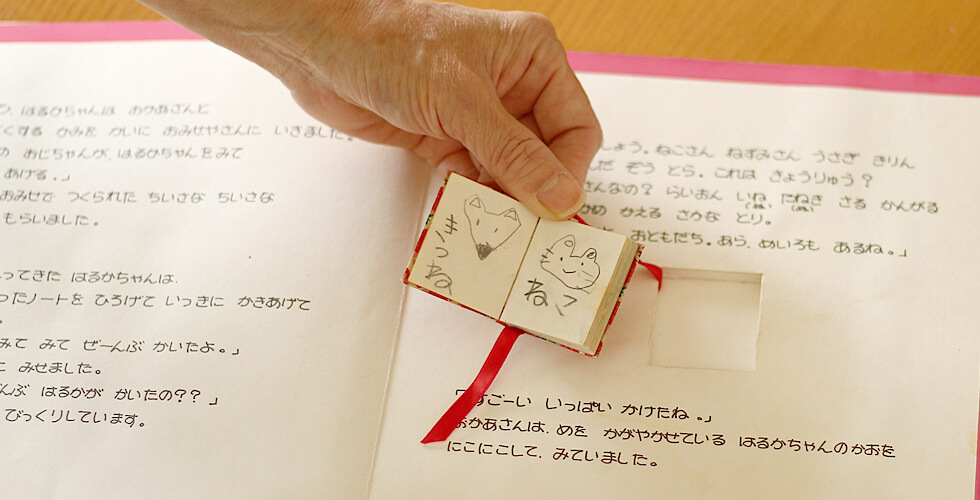 はるかちゃんは おかあさんと
くする かみを かいに おみせやさんに いきました。
の おじちゃんが、はるかちゃんをみて
あげる。」
おみせで つくられた ちいさな ちいさな
もらいました。
ってきた はるかちゃんは、
ったノートを ひろげて いっきに かきあげて
。
みて みて ぜーんぶ かいたよ。」
に みせました。
んぶ はるかが かいたの？？ 」
びっくりしています。
きつね
ねこ
しょう。ねこさん ねずみさん うさぎ きりん
だ ぞう とら。これは きょうりゅう？
さんなの？ らいおん いね たねき さる かんがる
かめ かえる さかな とり。
おともだち。あら、めいろも あるね。」
「すごーい いっぱい かけたね 。」
おかあさんは、めを かがやかせている はるかちゃんのかおを
にこにこして、みていました。